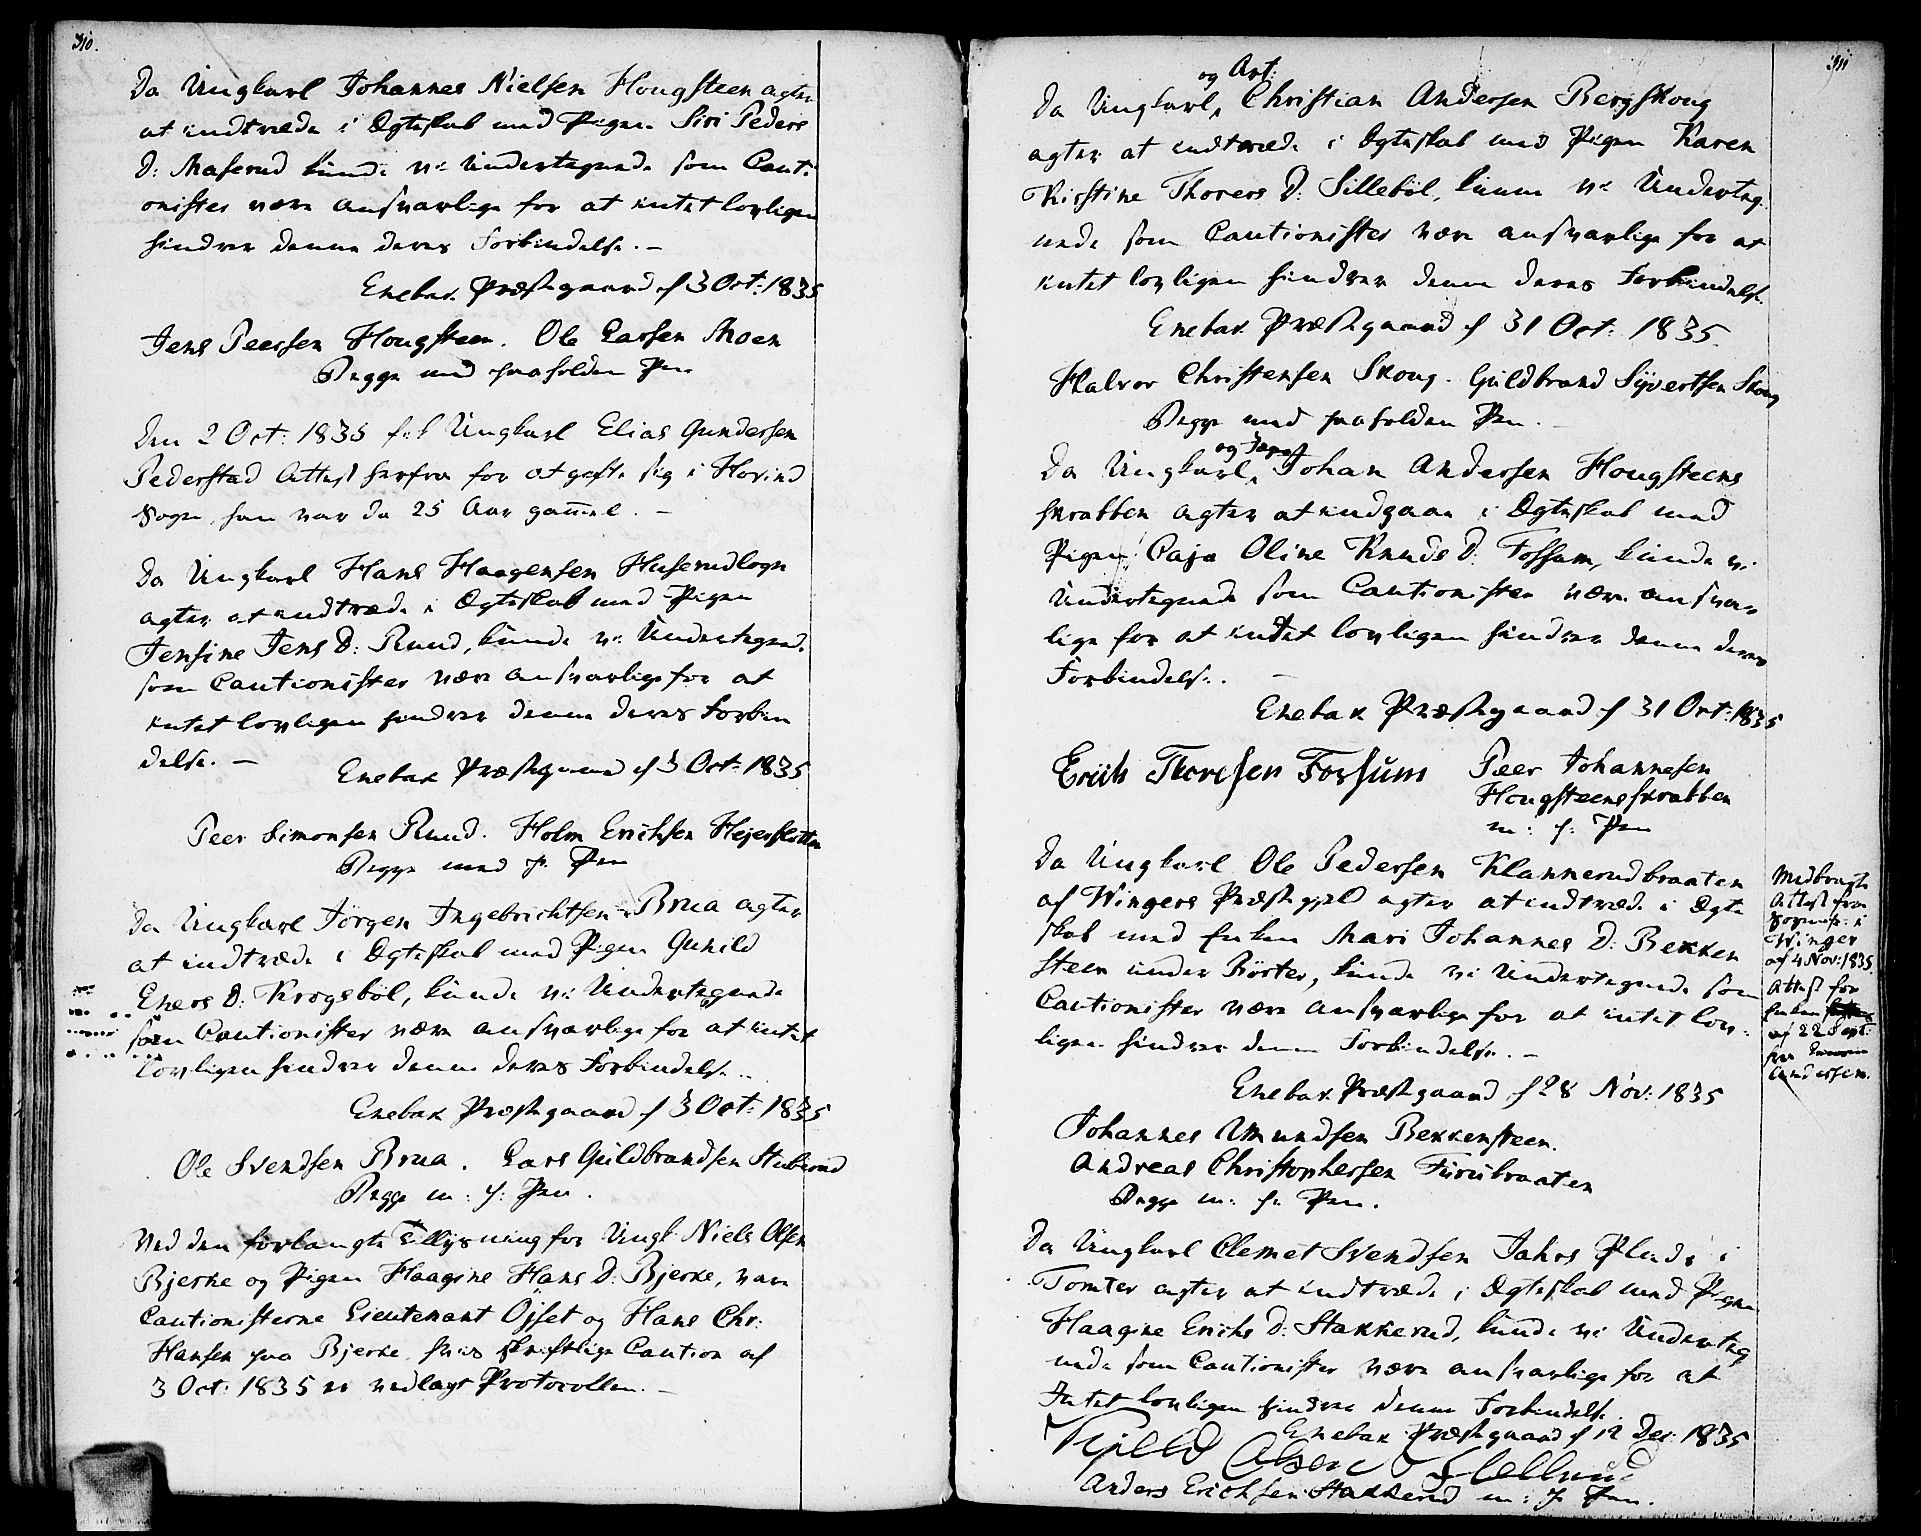 310.
Da Ungkarl Johannes Nielsen Hougsteen agter
at indtræde i Ægteskab med Pigen Siri Peders
D: Maserud kunde vi Undertegnede som Cauti
onister være ansvarlige for at intet lovligen
hindrer denne deres Forbindelse. —
Enebak Præstegaard d 3 Oct: 1835
Jens Peersen Hougsteen. Ole Larsen Moen
Begge med paaholden Pen
Den 2 Oct: 1835 fik Ungkarl Elias Gundersen
Pederstad Attest herfra for at gifte sig i Hovind
Sogn, han var da 25 Aar gammel. —
Da Ungkarl Hans Haagensen Huserudlogn
agter at indtræde i Ægteskab med Pigen
Jensine Jens D: Rund, kunde vi Undertegnede
som Cautionister være ansvarlige for at
intet lovligen hindrer denne deres Forbin
delse. —
Enebak Præstegaard d 3 Oct: 1835
Peer Simonsen Rund. Holm Erichsen Hejersletten
Begge med p. Pen
Da Ungkarl Jörgen Ingebrichtsen Brua agter
at indtræde i Ægteskab med Pigen Gunild
Eners D: Krogsböl, kunde vi Undertegnede
som Cautionister være ansvarlige for at intet
lovligen hindrer denne deres Forbindelse. —
Enebak Præstegaard d 3 Oct: 1835
Ole Svendsen Brua. Lars Guldbrandsen Stuberud
Begge m: p: Pen.
Ved den forlangte Tillysning for Ungk: Niels Olsen
Bjerke og Pigen Haagine Hans D: Bjerke, vare
Cautionisterne Lieutenant Öjset og Hans Chr:
Hansen paa Bjerke, hvis skriftlige Caution af
3 Oct: 1835 er vedlagt Protocollen. —
311
og Art:
Da Ungkarl, Christian Andersen Bergskoug
agter at indtræde i Ægteskab med Pigen Karen
Kirstine Thorers D: Silleböl, kunne vi Underteg
nede som Cautionister være ansvarlige for at
intet lovligen hindrer denne deres Forbindelse.
Enebak Præstegaard d 31 Oct: 1835.
Halvor Christensen Skoug. Guldbrand Syvertsen Skoug
Begge med paaholden Pen. —
og Jæger
Da Ungkarl, Johan Andersen Hougsteens
skrabben agter at indgaae i Ægteskab med
Pigen Caja Oline Knuds D: Fossum, kunde vi
Undertegnede som Cautionister være ansvar
lige for at intet lovligen hindrer denne deres
Forbindelse. —
Enebak Præstegaard d 31 Oct: 1835
Erich Thoresen Forsum Peer Johannesen
Hougsteensskrabben
m: p: Pen
Da Ungkarl Ole Pedersen Klannerudbraaten
af Wingers Præstegjeld agter at indtræde i Ægte
skab med Enken Mari Johannes D: Bekken
steen under Börter, kunde vi Undertegnede som
Cautionister være ansvarlige for at intet lov-
ligen hindrer denne Forbindelse. —
Enebak Præstegaard d 28 Nov: 1835
Johannes Amundsen Bekkensteen.
Andreas Christophersen Furubraaten
Begge m: p: Pen.
Medbragte
Attest fra
i
Winger
af 4 Nov: 1835
Attest for
Enken
af 22 Sept:
fra
Andersen.
Da Ungkarl Clemet Svendsen Jahrs Plads i
Tomter agter at indtræde i Ægteskab med Pigen
Haagine Erichs D: Stakkerud, kunde vi Underteg
nede som Cautionister være ansvarlige for at
Intet lovligen hindrer denne Forbindelse.
Enebak Præstegaard d 12 Dec: 1835
Anders Erichsen Stakkerud m: p: Pen.